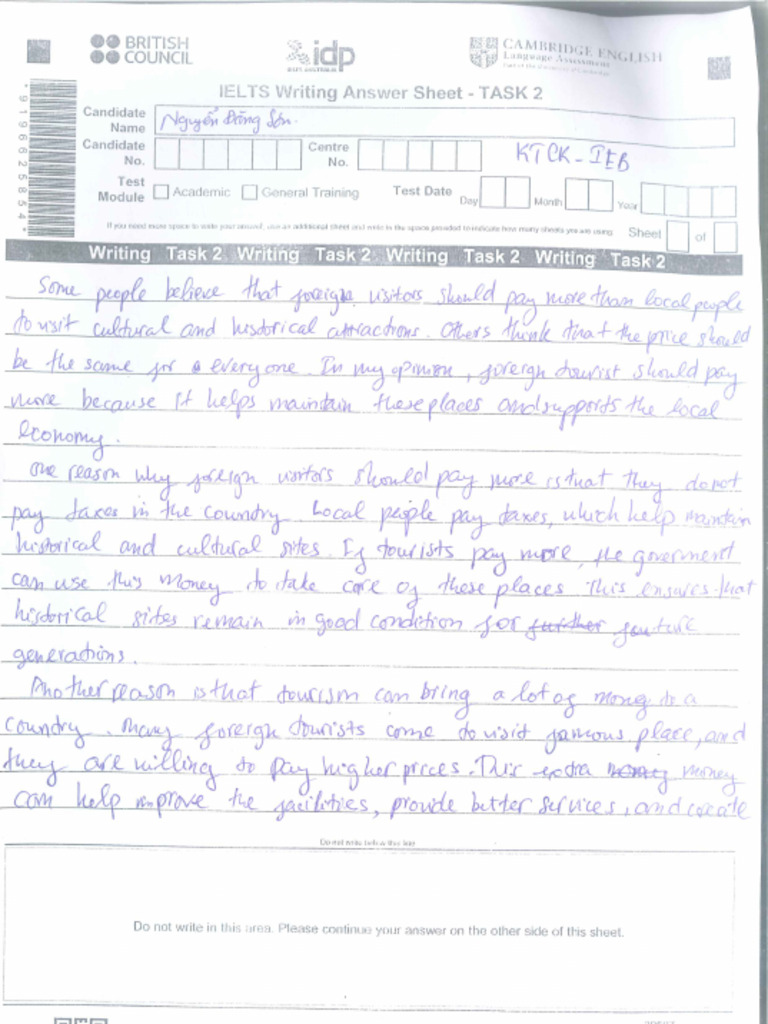 BRITISH COUNCIL
idp
CAMBRIDGE ENGLISH
Language Assessment
Part of the University of Cambridge
IELTS Writing Answer Sheet - TASK 2
Candidate Name Nguyễn Đăng Sơn.
Candidate No. Centre No. KTCK-IEB
Test Module Academic General Training Test Date Day Month Year
If you need more space to write your answer, use an additional sheet and write in the space provided to indicate how many sheets you are using Sheet of
Writing Task 2 Writing Task 2 Writing Task 2 Writing Task 2
Some people believe that foreign visitors should pay more than local people
to visit cultural and historical attractions. Others think that the price should
be the same for everyone. In my opinion, foreign tourist should pay
more because it helps maintain these places and supports the local
economy.
One reason why foreign visitors should pay more is that they do not
pay taxes in the country. Local people pay taxes, which help maintain
historical and cultural sites. If tourists pay more, the goverment
can use this money to take care of these places This ensures that
historical sites remain in good condition for further fauture
generations.
Another reason is that tourism can bring a lot of money to a
country. Many foreign tourists come to visit famous place, and
they are willing to pay higher prices. This extra money money
can help improve the facilities, provide better services, and create
Do not write below this line
Do not write in this area. Please continue your answer on the other side of this sheet.
*9196625854*